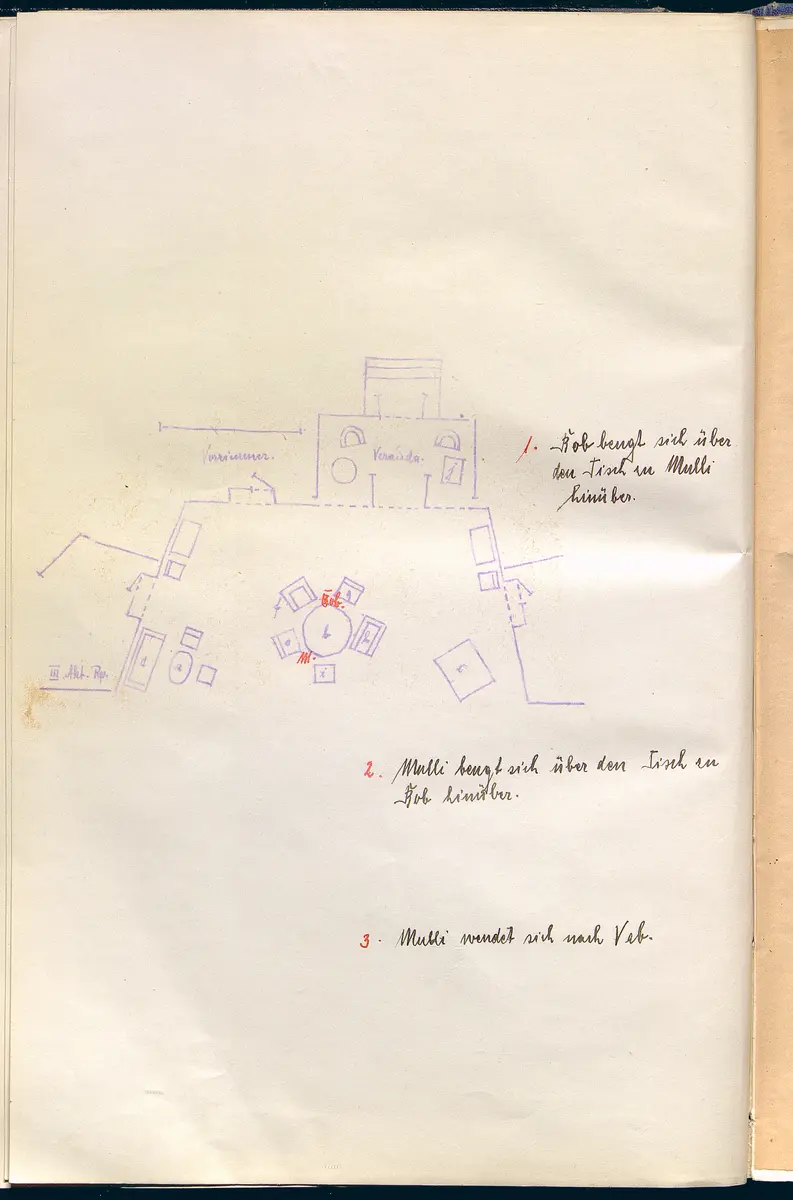 Vorzimmer.
Veranda.
1. Kob beugt sich über
den Tisch zu Mulli
hinüber.
j
Kob.
g
b
h
e
M.
i
d
a
c
III. Akt. Rp.
2. Mulli beugt sich über den Tisch zu
Kob hinüber.
3. Mulli wendet sich nach Veb.